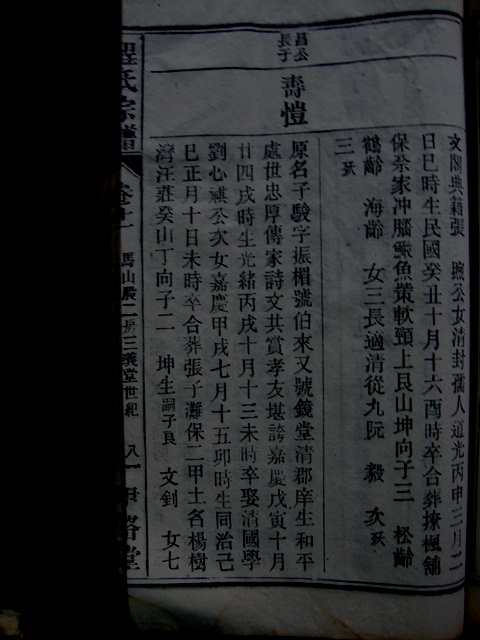 文閣典籍張 煦公女清封孺人道光丙申三月二
日巳時生民國癸丑十月十六酉時卒合葬撩楓舖
保佘家冲腦鱖魚岽軟頸上艮山坤向子三 松齡
鶴齡 海齡 女三長適清從九阮 毅 次殀
三殀
昌公
長子
壽愷
原名子駿字振楣號伯來又號鏡堂清郡庠生和平
處世忠厚傳家詩文共賞孝友堪誇嘉慶戊寅十月
廿四戌時生光緒丙戌十月十三未時卒娶清國學
劉心祺公次女嘉慶甲戌七月十五卯時生同治己
巳正月十日未時卒合葬張子灘保二甲土名楊樹
灣汪莊癸山丁向子二 坤生嗣子良 文釗 女七
氏宗譜
卷十一
馬山殿二房三義堂世紀
八